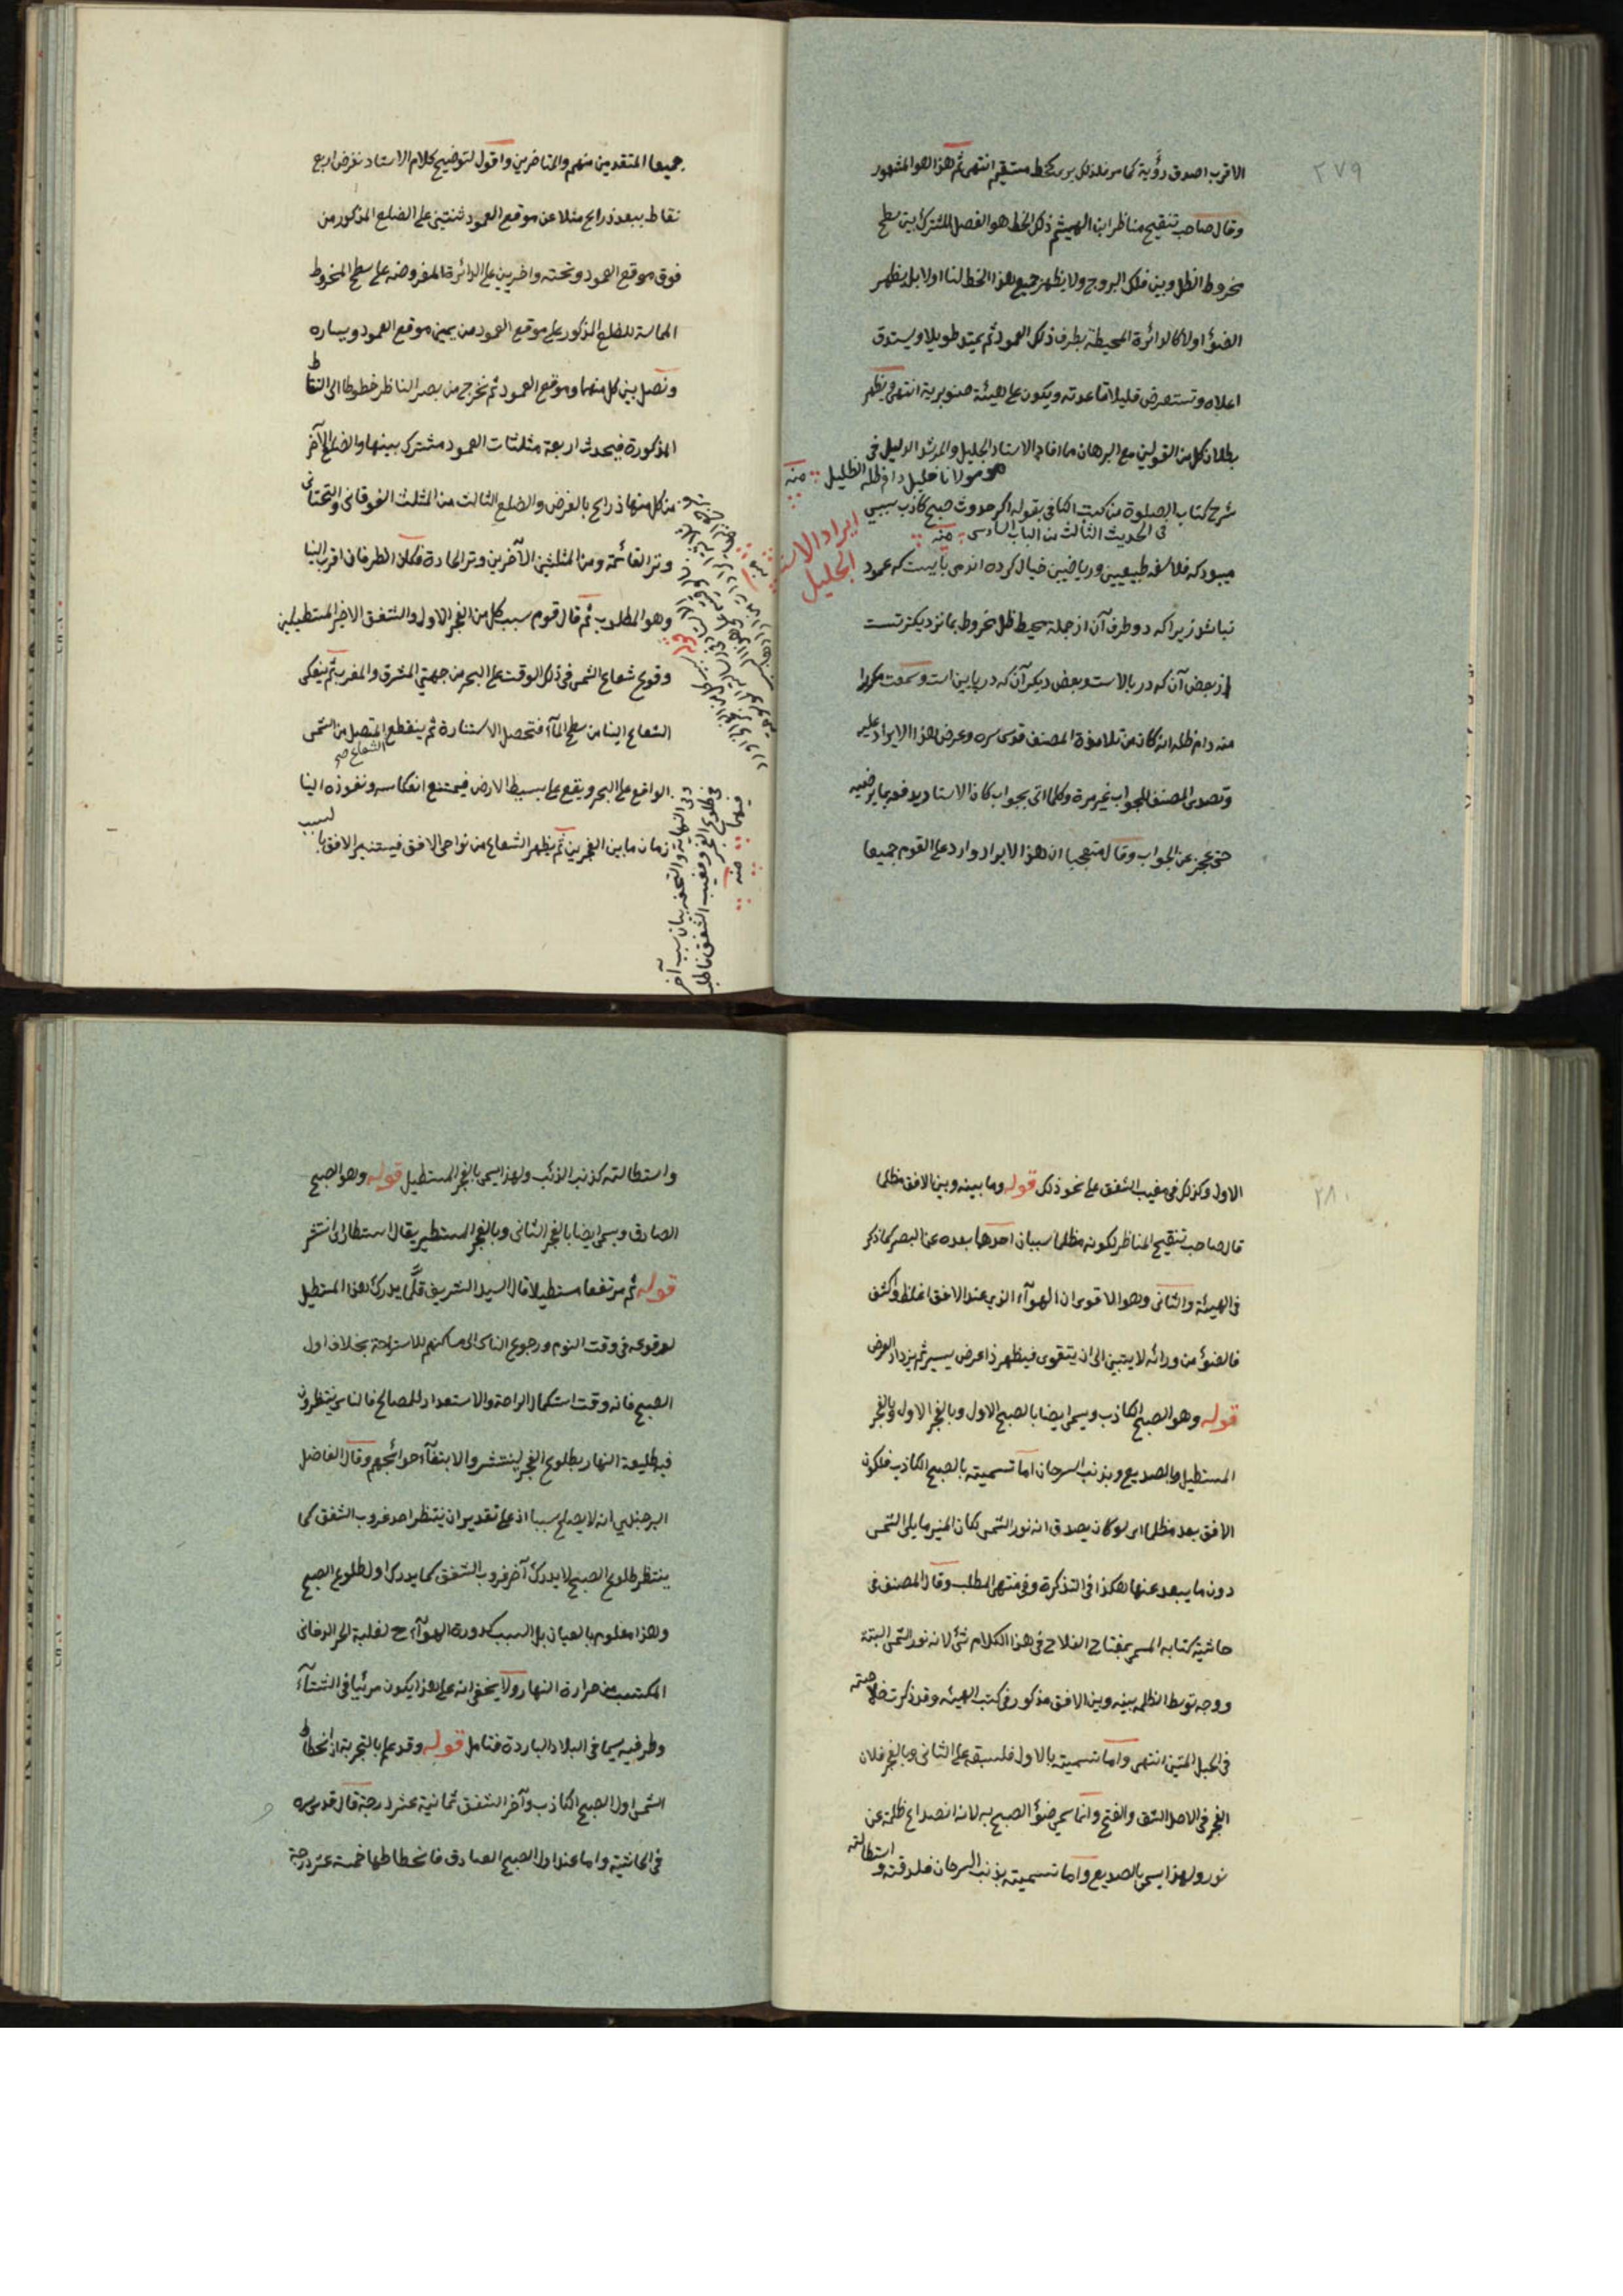 ٢٧٩
الاقرب اصدق رؤية كما مر فلذلك يرى كخط مستقيم انتهى ثم هذا هو المشهور
وقال صاحب تنقيح مناظر ابن الهيثم ذلك الخط هو الفصل المشترك بين سطح
مخروط الظل وبين فلك البروج ولا يظهر جميع هذا الخط لنا اولا بل يظهر
الضوؤ اولا كالدائرة المحيطة بطرف ذلك العمود ثم يمتد طويلا ويستدق
اعلاه وتستعرض قليلا قاعدته ويكون على هيئة صنوبرية انتهى ويظهر
بطلان كل من القولين مع البرهان ما افاده الاستاد الجليل والمرشد الدليل فى
هو مولانا خليل دام ظله الظليل منه
شرح كتاب الصلوة من كتب الكافى بقوله اكر حدوث صبح كاذب سببى
فى الحديث الثالث من الباب السادس منه
ايراد الاستاد الجليل
ميبود كه فلاسفه طبيعيين ورياضيين خيال كرده اند مى بايست كه عمود
نباشد زيرا كه دو طرف آن از جملة محيط ظل مخروط بما نزديكتر تست
از بعض آن كه در بالاست وبعض ديكر آن كه در پايين است وسمعت مكررا
منه دام ظله انه كان من تلامذة المصنف قدس سره وعرض هذا الايراد عليه
وتصدى المصنف للجواب غير مرة وكلما اتى بجواب كان الاستاد يدفعه بما يرضيه
حتى عجز عن الجواب وقال متعجبا ان هذا الايراد وارد على القوم جميعا
جميعا المتقدمين منهم والمتاخرين واقول لتوضيح كلام الاستاد نفرض اربع
نقاط ببعد ذراع مثلا عن موقع العمود ثنتين على الضلع المذكور من
فوق موقع العمود وتحته واخريين على الدائرة المفروضه على سطح المخروط
المماسة للضلع المذكور على موقع العمود من يمين موقع العمود ويساره
ونصل بين كل منها وموقع العمود ثم نخرج من بصر الناظر خطوطا الى النقاط
المذكورة فيحدث اربعة مثلثات العمود مشترك بينها والضلع الآخر
من كل منها ذراع بالفرض والضلع الثالث من المثلث الفوقانى والتحتانى
وتر القائمة ومن المثلثين الآخرين وتر الحادة فكان الطرفان اقرب الينا
وهو المطلوب ثم قال قوم سبب كل من الفجر الاول والشفق الاخير المستطيلين
وقوع شعاع الشمس فى ذلك الوقت على البحر من جهتى المشرق والمغرب ثم ينعكس
الشعاع الينا من سطح المآء فتحصل الاستنارة ثم ينقطع المتصل من الشمس
الشعاع صح
الواقع على البحر ويقع على بسيط الارض فيمتنع انعكاسه ونفوذه الينا
زمان ما بين الفجرين ثم يظهر الشعاع من نواحى الافق فيستنير الافق با
لسبب
وفى النهاية والتحفه بيان سبب آخر
فى طلوع الفجر ومغيب الشفق فاطلبه
فيهما منه
٢٨٠
الاول وكذلك فى مغيب الشفق على نحو ذلك قوله وما بينه وبين الافق مظلما
قال صاحب تنقيح المناظر لكونه مظلما سببان احدهما بعده عن البصر كما ذكر
فى الهيئة والثانى وهو الاقوى ان الهوآء الذى عند الافق اغلظ واكثف
فالضوؤ من ورائه لا يتبين الى ان يتقوى فيظهر ذا عرض يسير ثم يزداد العرض
قوله وهو الصبح الكاذب ويسمى ايضا بالصبح الاول وبالفجر الاول وبالفجر
المستطيل وبالصديع وبذنب السرحان اما تسميته بالصبح الكاذب فلكون
الافق بعد مظلما اى لو كان يصدق انه نور الشمس لكان المنير ما يلى الشمس
دون ما يبعد عنها هكذا فى التذكرة وفى منتهى المطلب وقال المصنف فى
حاشية كتابه المسمى بمفتاح الفلاح فى هذا الكلام شئ لانه نور الشمس البتة
ووجه توسط الظلمه بينه وبين الافق مذكور فى كتب الهيئه وقد ذكرت خلاصته
فى الحبل المتين انتهى واما تسميته بالاول فلسبقه على الثانى وبالفجر فلان
الفجر فى الاصل الشق والفتح وانما سمى ضوؤ الصبح به لانه انصداع ظلمة عن
نور ولهذا يسمى بالصديع واما تسميته بذنب السرحان فلدقته و
استطالته
واستطالته كذنب الذئب ولهذا يسمى بالفجر المستطيل قوله وهو الصبح
الصادق ويسمى ايضا بالفجر الثانى وبالفجر المستطير يقال استطار اى انتشر
قوله ثم مرتفعا مستطيلا قال السيد الشريف قلما يدرك هذا المستطيل
لوقوعه فى وقت النوم ورجوع الناس الى مساكنهم للاستراحة بخلاف اول
الصبح فانه وقت استكمال الراحة والاستعداد للمصالح فالناس ينتظرون
فيه طليعة النهار بطلوع الفجر لينتشروا لابتغآء حوائجهم وقال الفاضل
البرجندى انه لا يصلح سببا اذ على تقدير ان ينتظر احد غروب الشفق كما
ينتظر طلوع الصبح لا يدرك آخر غروب الشفق كما يدرك اول طلوع الصبح
وهذا معلوم بالعيان بل السبب كدورة الهوآء ح لغلبة الحر الدخانى
المكتسب من حرارة النهار ولا يخفى انه على هذا يكون مرئيا فى الشتآء
وطرفيه سيما فى البلاد الباردة فتامل قوله وقد علم بالتجربة ان انحطاط
الشمس اول الصبح الكاذب وآخر الشفق ثمانية عشر درجة قال قدس سره
فى الحاشية واما عند اول الصبح الصادق فانحطاطها خمسة عشر درجة